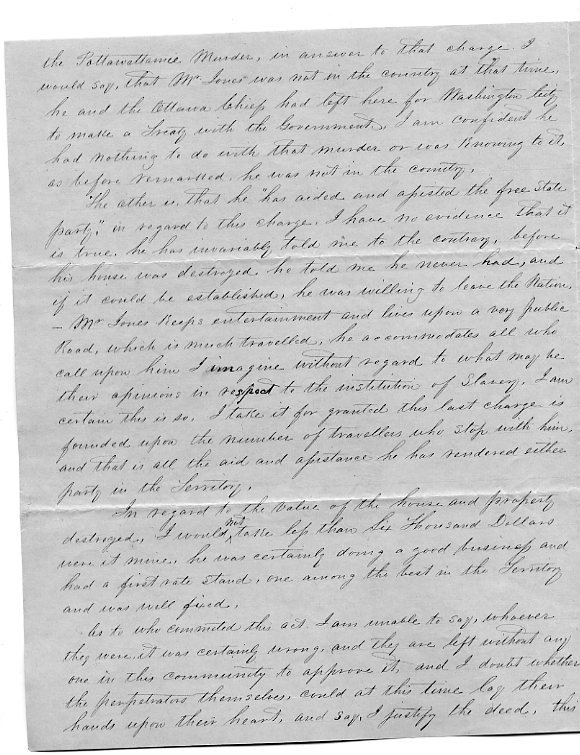 the Pottawattamie Murder, in answer to that charge I
would say, that Mr Jones was not in the country at that time,
he and the Ottawa Chiefs had left here for Washington City
to make a Treaty with the Government, I am confident he
had nothing to do with that murder or was Knowing to it,
as before remarked, he was not in the country,
The other is, that he "has aided and assisted the free State
party", in regard to this charge, I have no evidence that it
is true, he has invariably told me to the contrary, before
his house was destroyed he told me he never had, and
if it could be established, he was willing to leave the Nation,
– Mr Jones Keeps entertainment and lives upon a very public
Road, which is much travelled, he accommodates all who
call upon him I imagine without regard to what may be
their opinions in respect to the institution of Slavery, I am
certain this is so, I take it for granted this last charge is
founded upon the number of travellers who stop with him,
and that is all the aid and assistance he has rendered either
party in the Territory,
In regard to the value of the house and property
destroyed, I would not take less than Six Thousand Dollars
were it mine, he was certainly doing a good business and
had a first rate stand, one among the best in the Territory
and was well fixed,
As to who committed this act, I am unable to say, whoever
they were, it was certainly wrong, and they are left without any
one in this community to approve it, and I doubt whether
the perpetrators themselves, could at this time lay their
hands upon their heart, and say, I justify the deed, this